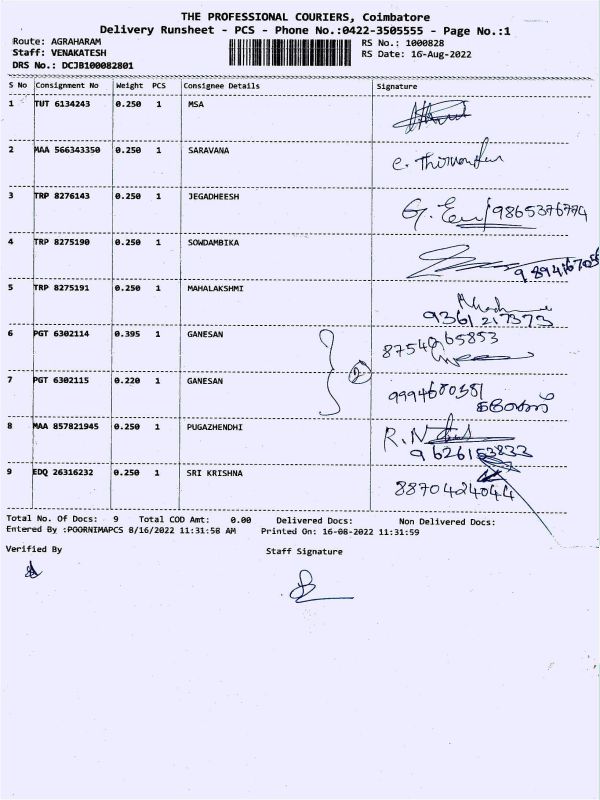 THE PROFESSIONAL COURIERS, Coimbatore
Delivery Runsheet - PCS - Phone No.:0422-3505555 - Page No.:1
Route: AGRAHARAM RS No.: 1000828
Staff: VENAKATESH RS Date: 16-Aug-2022
DRS No.: DCJB100082801
S No Consignment No Weight PCS Consignee Details Signature
1 TUT 6134243 0.250 1 MSA
2 MAA 566343350 0.250 1 SARAVANA
3 TRP 8276143 0.250 1 JEGADHEESH 9865376774
4 TRP 8275190 0.250 1 SOWDAMBIKA
5 TRP 8275191 0.250 1 MAHALAKSHMI
9361217373
6 PGT 6302114 0.395 1 GANESAN
2
7 PGT 6302115 0.220 1 GANESAN
8 MAA 857821945 0.250 1 PUGAZHENDHI R.N
9 EDQ 26316232 0.250 1 SRI KRISHNA
8870424044
Total No. Of Docs: 9 Total COD Amt: 0.00 Delivered Docs: Non Delivered Docs:
Entered By :POORNIMAPCS 8/16/2022 11:31:58 AM Printed On: 16-08-2022 11:31:59
Verified By Staff Signature